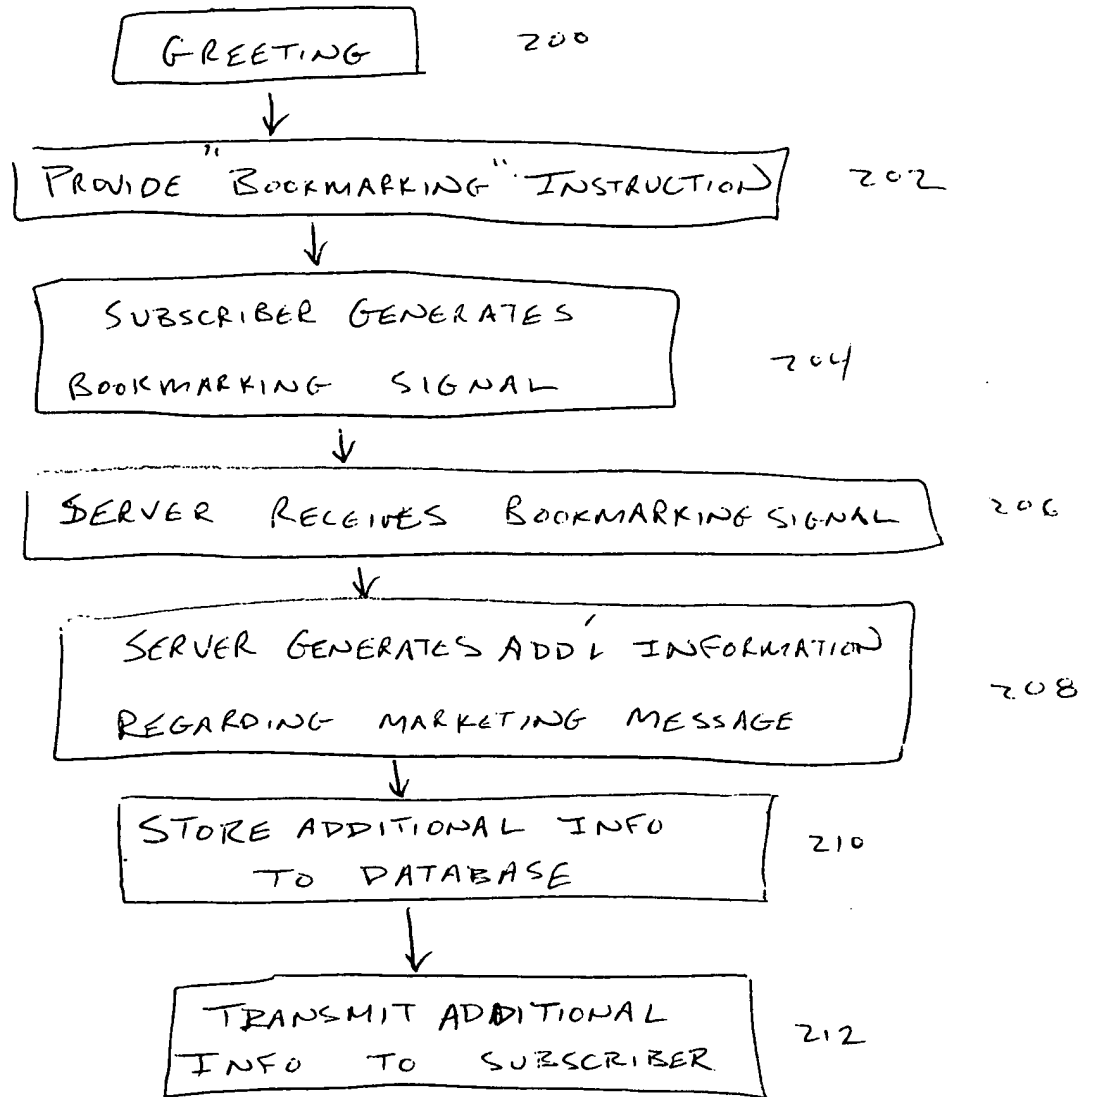 GREETING 200
PROVIDE "BOOKMARKING" INSTRUCTION 202
SUBSCRIBER GENERATES
BOOKMARKING SIGNAL
204
SERVER RECEIVES BOOKMARKING SIGNAL 206
SERVER GENERATES ADD'L INFORMATION
REGARDING MARKETING MESSAGE
208
STORE ADDITIONAL INFO
TO DATABASE
210
TRANSMIT ADDITIONAL
INFO TO SUBSCRIBER
212